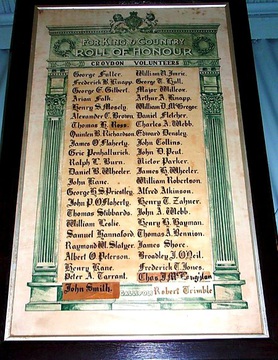 FOR KING & COUNTRY
ROLL OF HONOUR
CROYDON VOLUNTEERS
George Fuller. William D. Imrie.
Frederick B. Knapp. George T. Hall.
George E. Gilbert. Major Willcox.
Arian Falk. Arthur A. Knapp.
Henry S. Mosely. William D. McGregor.
Alexander C. Brown. Daniel Fletcher.
Thomas H. Ross. Charles A. Webb.
Quinlen B. Richardson. Edward Densley.
James O. Flaherty. John Collins.
Eric Penhallurick. John D. Pent.
Ralph L. Burn. Victor Parker.
Daniel B. Wheeler. James H. Wheeler.
John Kane. William Robertson.
George H. S. Priestley. Alfred Atkinson.
John P. O'Flaherty. Henry T. Zahner.
Thomas Stibbards. John A. Webb.
William Leslie. Henry H. Hayman.
Samuel Hannaford. Thomas A. Bennion.
Raymond W. Slatyer. James Shore.
Albert O. Peterson. Broadley J. O'Neil.
Henry Kane. Frederick T. Jones.
Peter A. Tarrant. Thos. J.
John Smith. Robert Trimble